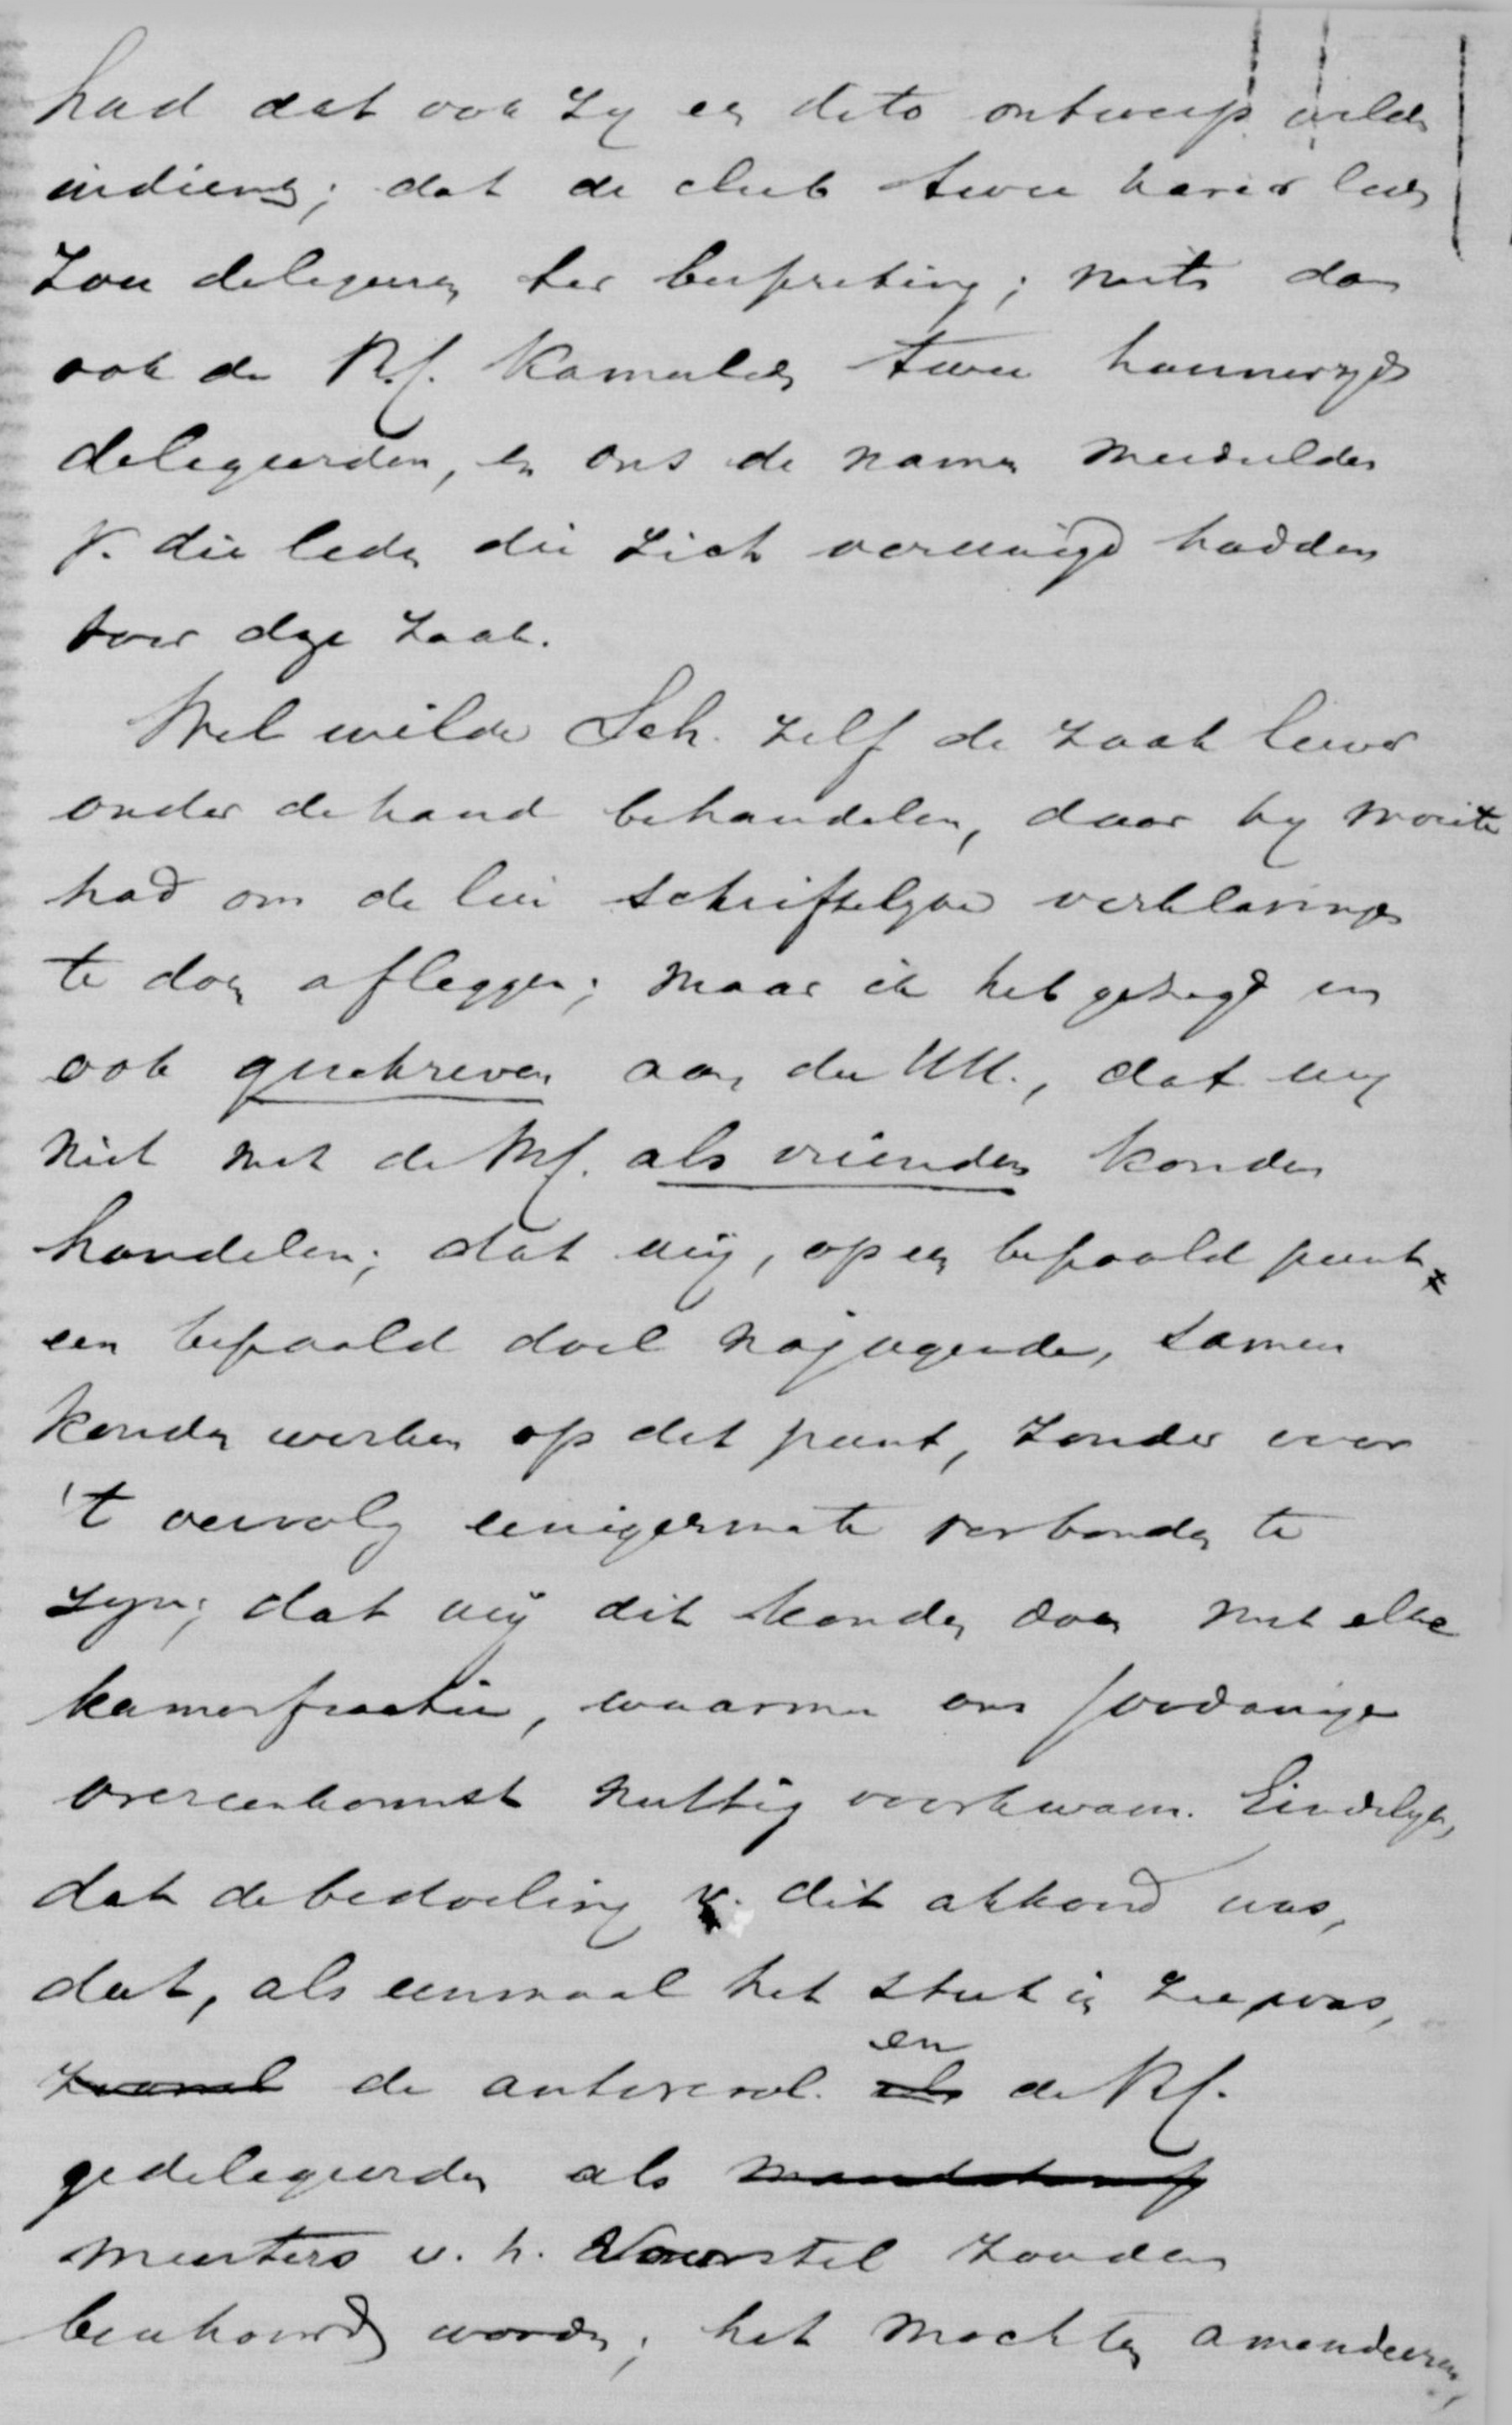 had dat ook zy een dito ontwerp wilden
indienen; dat de club twee harer leden
zou delegeeren ter bespreking; mits dan
ook de Rf. Kamerleden twee hunnerzyds
delegeerden, en ons de namen meedeelden
v. die leden die zich vereenigd hadden
voor deze zaak.
Wel wilde Sch. zelf de zaak liever
onder de hand behandelen, daar hy moeite
had om de lui schriftelyke verklaringen
te doen afleggen; maar ik heb gezegd en
ook geschreven aan de UU., dat wy
niet met de Rf. als vrienden konden
handelen; dat wij, op een bepaald punt
een bepaald doel najagende, samen
konden werken op dat punt, zonder voor
't vervolg eenigermate verbonden te
zyn; dat wij dit konden doen met elke
kamerfractie, waarmee ons zoodanige
overeenkomst nuttig voorkwam. Eindelyk,
dat de bedoeling v. dit akkoord was,
dat, als eenmaal het stuk in zee was,
zoowel de antirevol. als en de Rf.
gedelegeerden als
meesters v. h. Voorstel zouden
beschouwd worden; het mochten amendeeren,